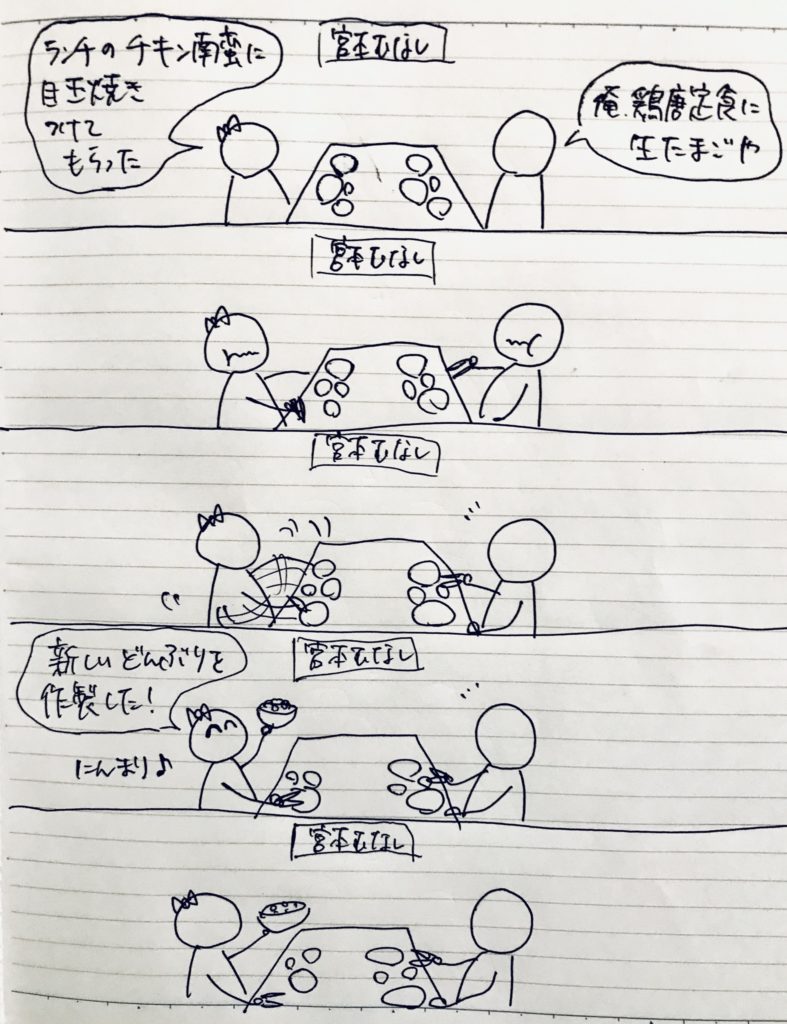 宮本むなし
ランチのチキン南蛮に
目玉焼き
つけて
もらった
俺、鶏唐定食に
生たまごや
宮本むなし
宮本むなし
宮本むなし
新しいどんぶりを
作製した!
にんまり♪
宮本むなし